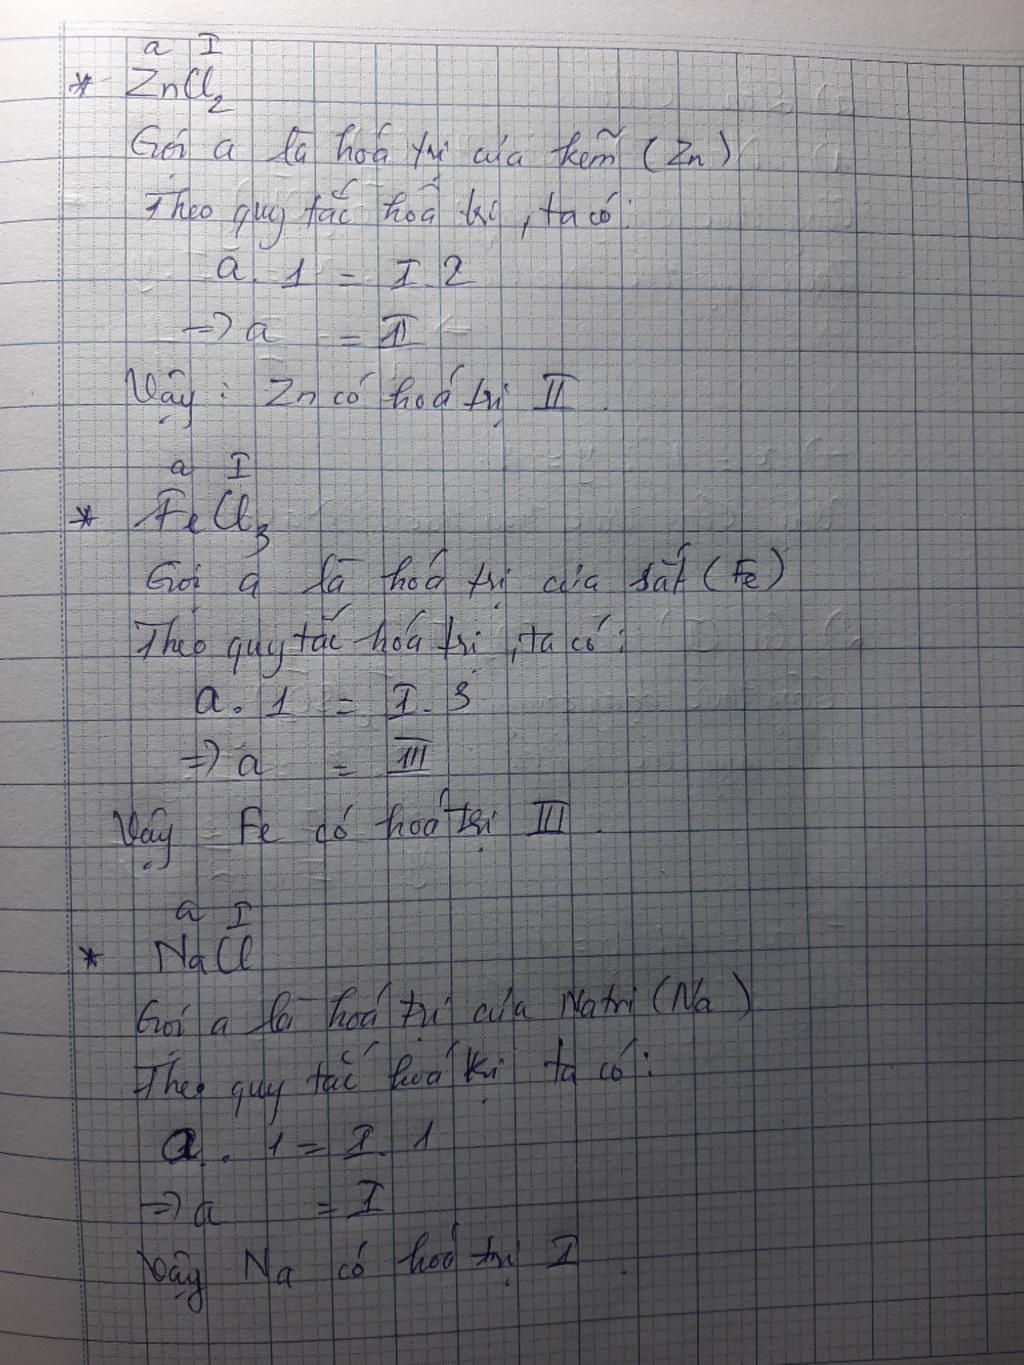 a I
* ZnCl2
Gọi a là hoá trị của kẽm (Zn)
Theo quy tắc hoá trị, ta có:
a. 1 = I. 2
=> a = II
Vậy : Zn có hoá trị II.
a I
* FeCl3
Gọi a là hoá trị của sắt (Fe)
Theo quy tắc hoá trị, ta có:
a. 1 = I. 3
=> a = III
Vậy Fe có hoá trị III.
a I
* NaCl
Gọi a là hoá trị của Natri (Na)
Theo quy tắc hoá trị ta có:
a. 1 = I. 1
=> a = I
Vậy Na có hoá trị I.